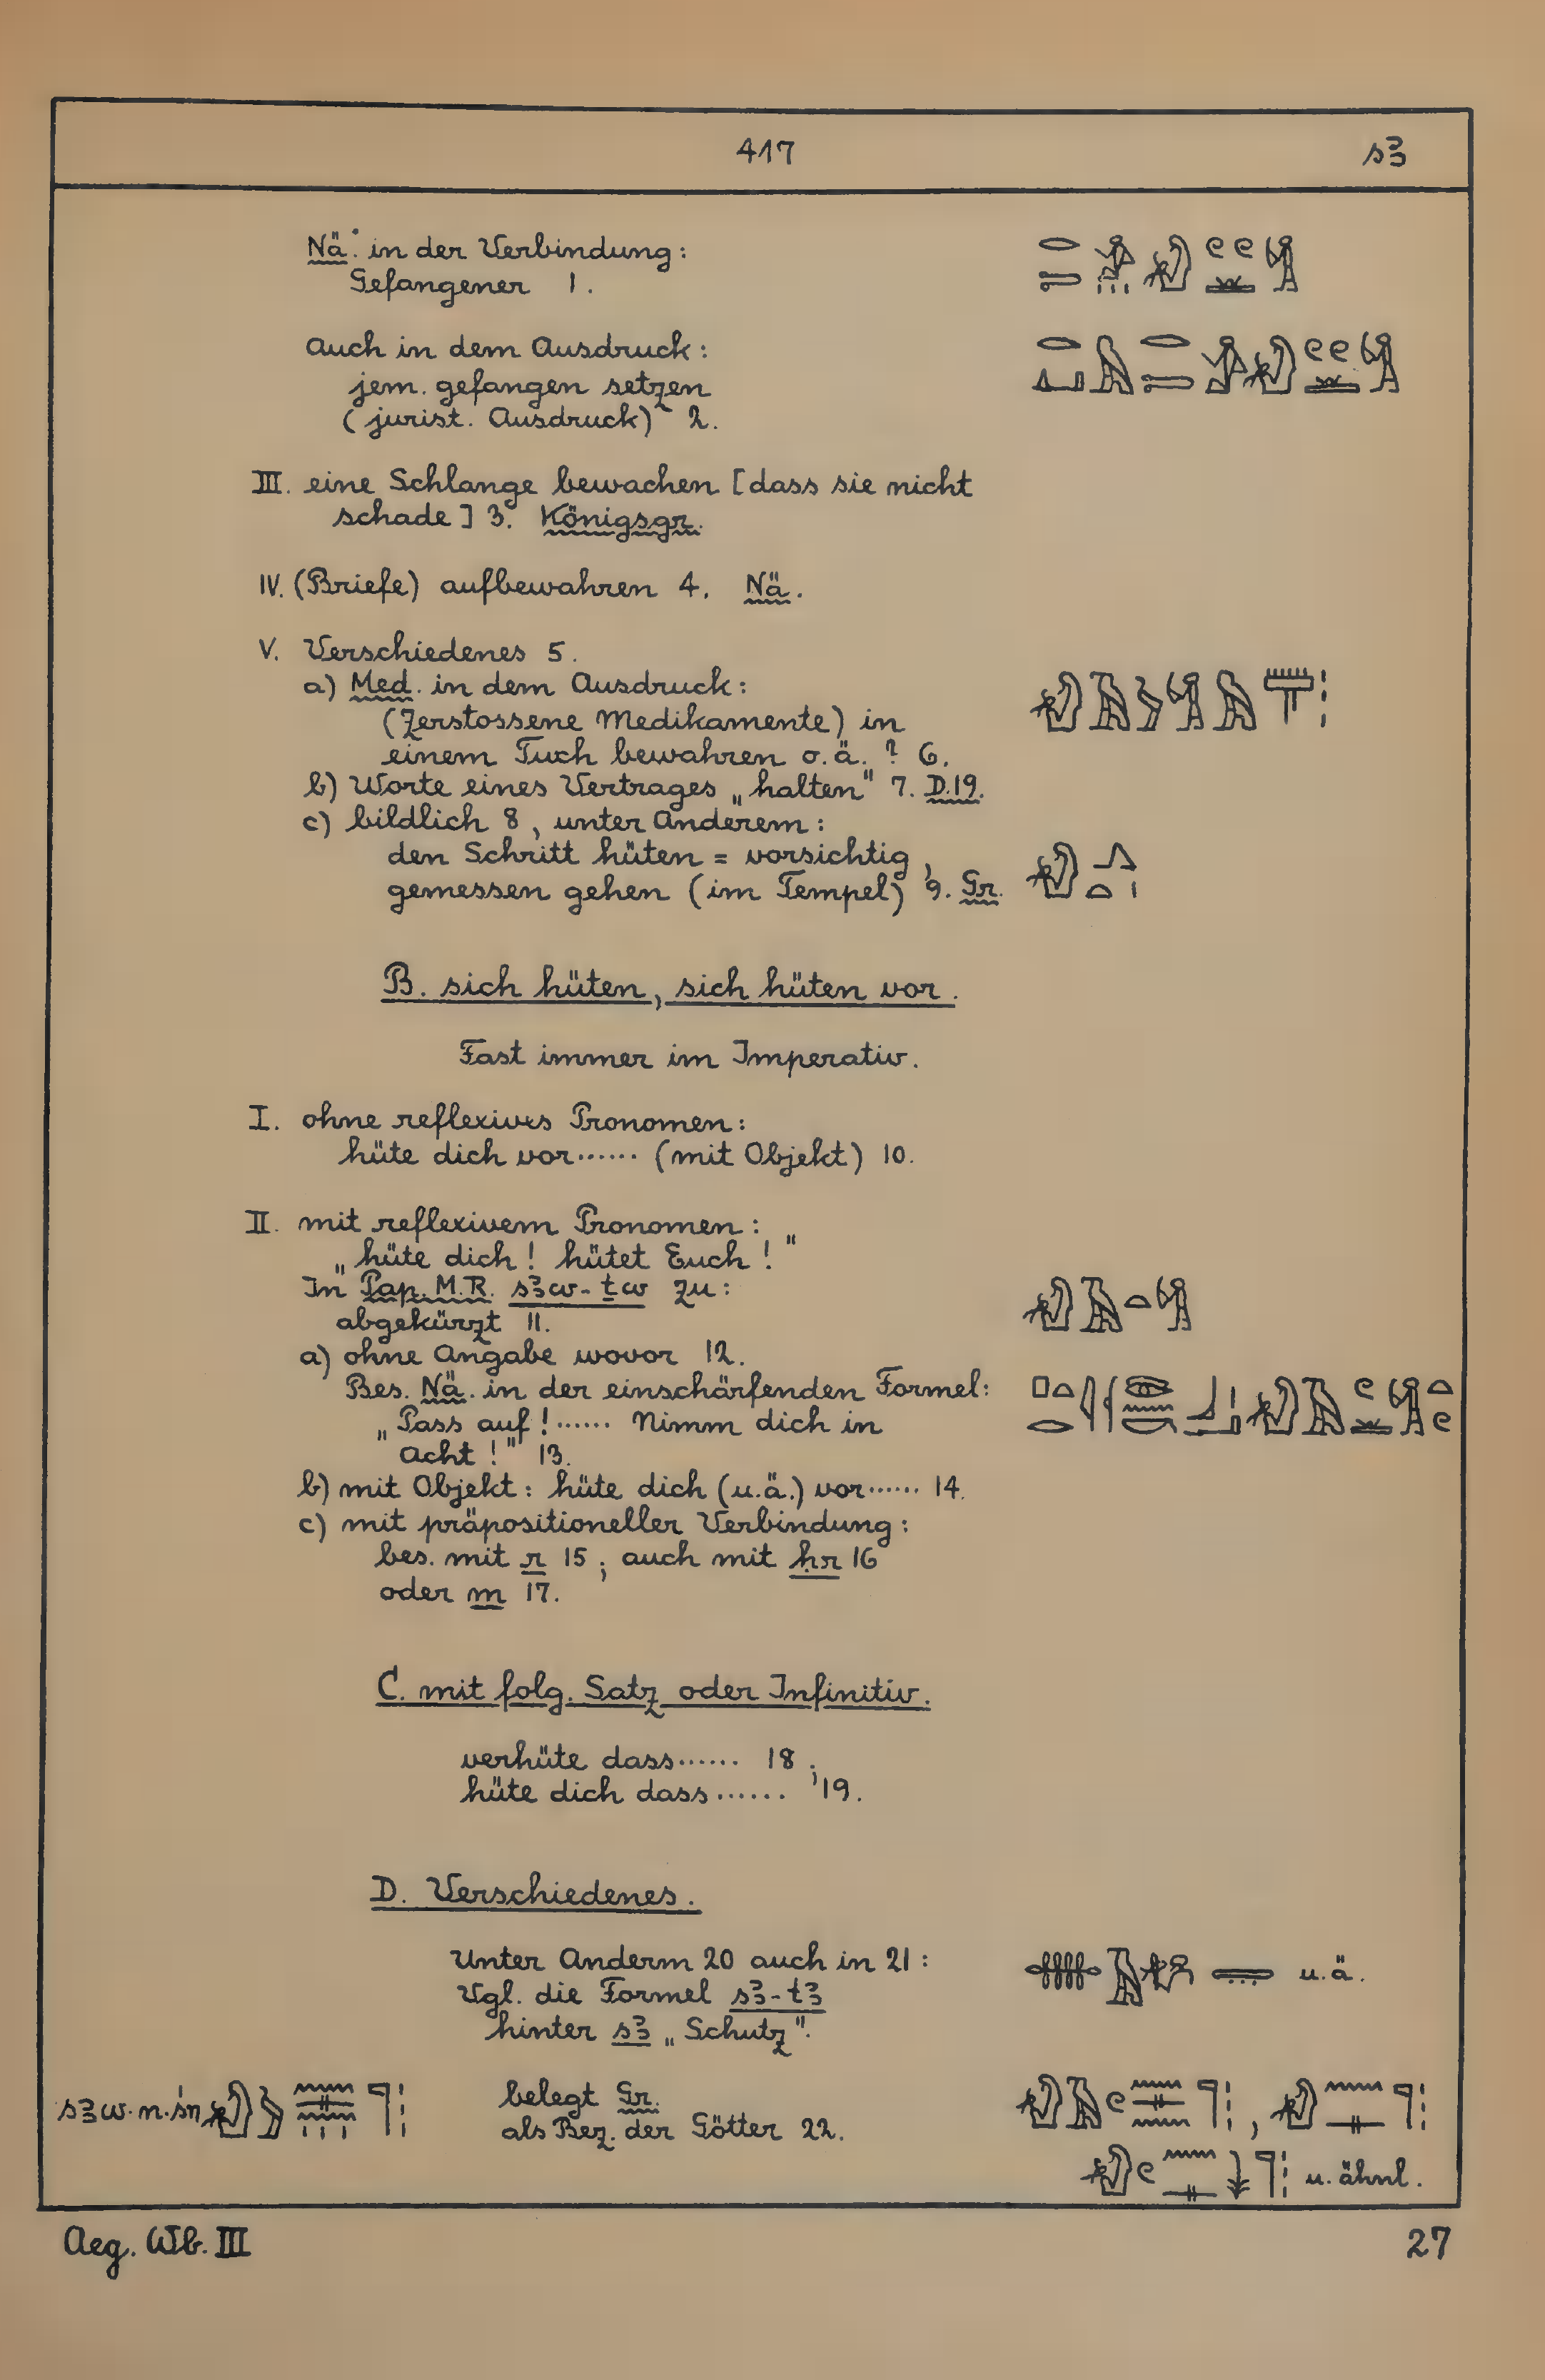 417 s3
Nä. in der Verbindung:
Gefangener 1.
Auch in dem Ausdruck:
jem. gefangen setzen
(jurist. Ausdruck) 2.
III. eine Schlange bewachen [dass sie nicht
schade] 3. Königsgr.
IV. (Briefe) aufbewahren 4. Nä.
V. Verschiedenes 5.
a) Med. in dem Ausdruck:
(zerstossene Medikamente) in
einem Tuch bewahren o.ä. ? 6.
b) Worte eines Vertrages „halten" 7. D.19.
c) bildlich 8, unter Anderem:
den Schritt hüten = vorsichtig,
gemessen gehen (im Tempel) 9. Gr.
B. sich hüten, sich hüten vor.
Fast immer im Imperativ.
I. ohne reflexives Pronomen:
hüte dich vor...... (mit Objekt) 10.
II. mit reflexivem Pronomen:
„hüte dich! hütet Euch!"
In Pap. M.R. sꜣw-ṯw zu:
abgekürzt 11.
a) ohne Angabe wovor 12.
Bes. Nä. in der einschärfenden Formel:
„Pass auf!...... Nimm dich in
Acht!" 13.
b) mit Objekt: hüte dich (u.ä.) vor...... 14.
c) mit präpositioneller Verbindung:
bes. mit r 15; auch mit ḥr 16
oder m 17.
C. mit folg. Satz oder Infinitiv.
verhüte dass...... 18;
hüte dich dass...... 19.
D. Verschiedenes.
Unter Anderm 20 auch in 21: u.ä.
Vgl. die Formel sꜣ-tꜣ
hinter sꜣ „Schutz".
sꜣw.n.śn belegt Gr.
als Bez. der Götter 22.
u. ähnl.
Aeg. Wb. III 27